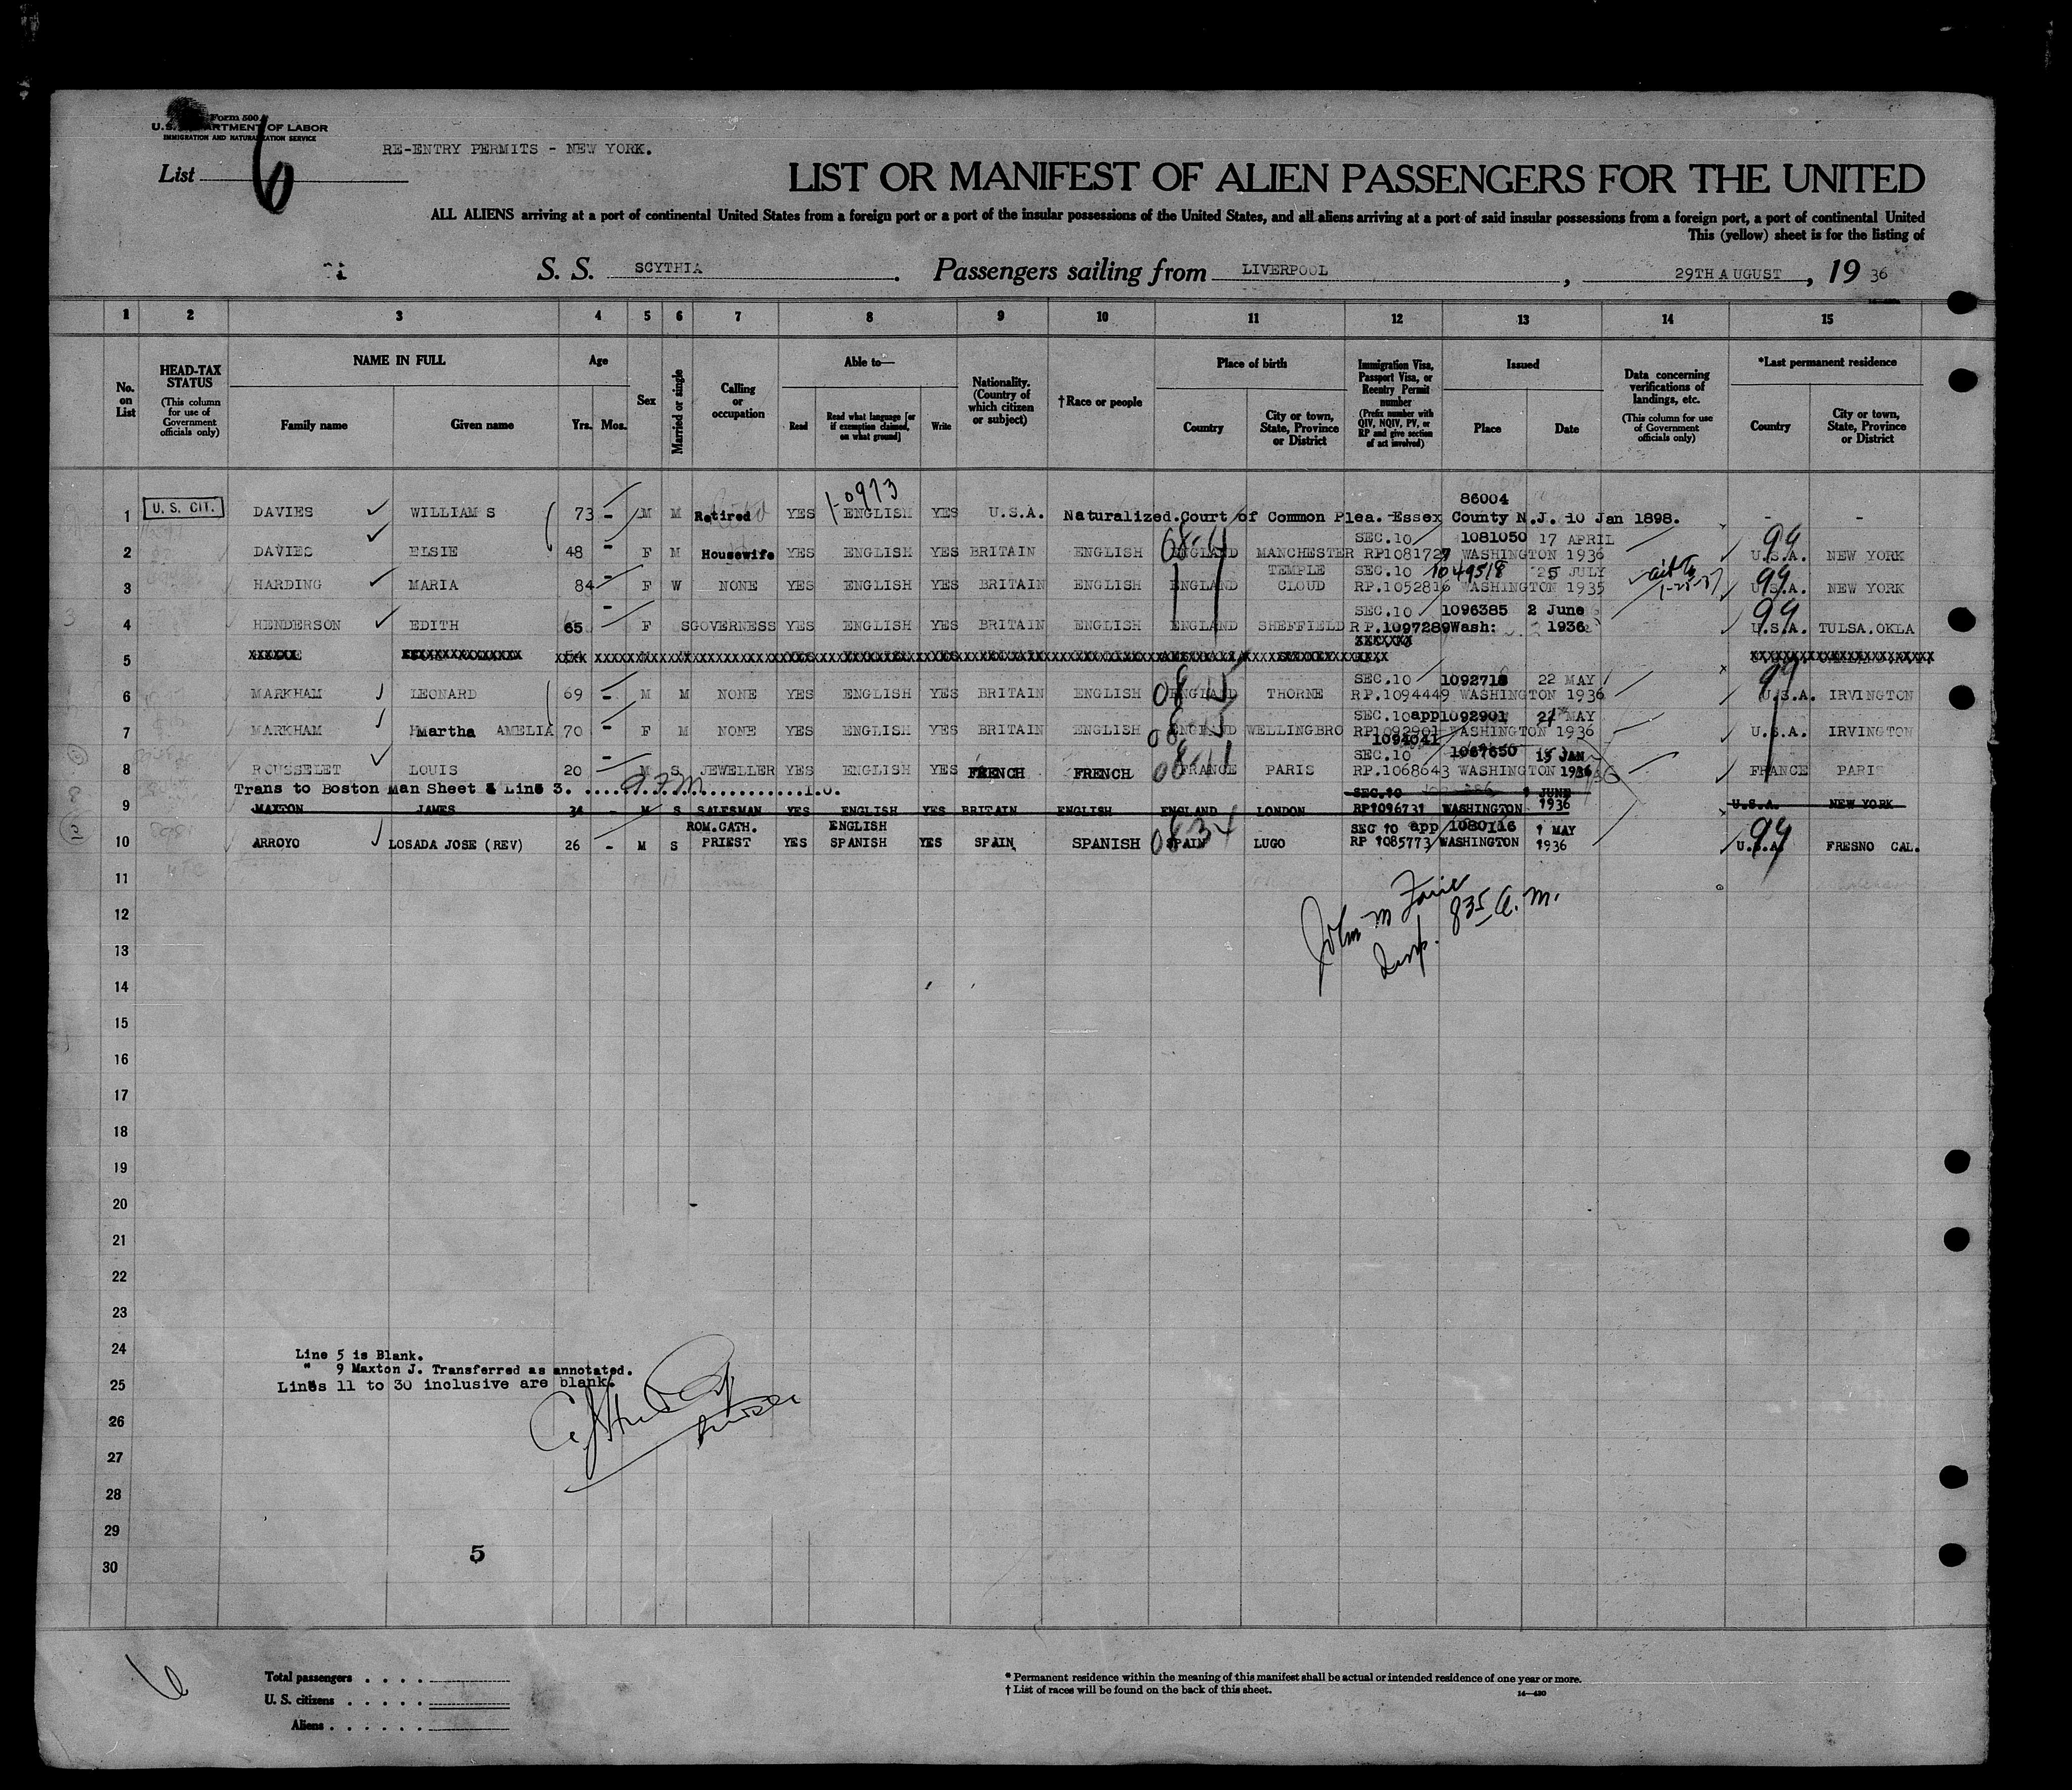 Form 500
U.S. DEPARTMENT OF LABOR
IMMIGRATION AND NATURALIZATION SERVICE
RE-ENTRY PERMITS - NEW YORK.
List 6
LIST OR MANIFEST OF ALIEN PASSENGERS FOR THE UNITED
ALL ALIENS arriving at a port of continental United States from a foreign port or a port of the insular possessions of the United States, and all aliens arriving at a port of said insular possessions from a foreign port, a port of continental United
This (yellow) sheet is for the listing of
S. S. SCYTHIA. Passengers sailing from LIVERPOOL, 29TH AUGUST, 19 36
1 2 3 4 5 6 7 8 9 10 11 12 13 14 15
No. on List
HEAD-TAX STATUS (This column for use of Government officials only)
NAME IN FULL
Family name
Given name
Age
Yrs. Mos.
Sex
Married or single
Calling or occupation
Able to—
Read
Read what language [or if exemption claimed, on what ground]
Write
Nationality. (Country of which citizen or subject)
†Race or people
Place of birth
Country
City or town, State, Province or District
Immigration Visa, Passport Visa, or Reentry Permit number (Prefix number with QIV, NQIV, PV, or RP and give section of act involved)
Issued
Place
Date
Data concerning verifications of landings, etc. (This column for use of Government officials only)
*Last permanent residence
Country
City or town, State, Province or District
1-0973
86004
1 U. S. CIT. DAVIES WILLIAM S 73 - M M Retired YES ENGLISH YES U.S.A. Naturalized.Court of Common Plea. Essex County N.J. 10 Jan 1898. - -
SEC.10 1081050 17 APRIL
2 DAVIES ELSIE 48 - F M Housewife YES ENGLISH YES BRITAIN ENGLISH ENGLAND MANCHESTER RP1081727 WASHINGTON 1936 U.S.A. NEW YORK 99
TEMPLE SEC.10 1049518 25 JULY
3 HARDING MARIA 84 - F W NONE YES ENGLISH YES BRITAIN ENGLISH ENGLAND CLOUD RP.1052816 WASHINGTON 1935 1-25-37 U.S.A. NEW YORK 99
SEC.10 1096385 2 June
4 HENDERSON EDITH 65 - F S GOVERNESS YES ENGLISH YES BRITAIN ENGLISH ENGLAND SHEFFIELD RP.1097289 Wash: 1936 U.S.A. TULSA.OKLA 99
5
SEC.10 1092718 22 MAY
6 MARKHAM LEONARD 69 - M M NONE YES ENGLISH YES BRITAIN ENGLISH ENGLAND THORNE RP.1094449 WASHINGTON 1936 U.S.A. IRVINGTON 99
SEC.10 app1092901 27 MAY
7 MARKHAM Martha AMELIA 70 - F M NONE YES ENGLISH YES BRITAIN ENGLISH ENGLAND WELLINGBRO RP1092901 WASHINGTON 1936 U.S.A. IRVINGTON
1094041
SEC.10 1067650 15 JAN
8 ROUSSELET LOUIS 20 - M S JEWELLER YES ENGLISH YES FRENCH FRENCH FRANCE PARIS RP.1068643 WASHINGTON 1936 FRANCE PARIS
Trans to Boston Man Sheet & Line 3. I.O.
SEC.10 1 JUNE
9 MAXTON JAMES 34 - M S SALESMAN YES ENGLISH YES BRITAIN ENGLISH ENGLAND LONDON RP1096731 WASHINGTON 1936 U.S.A. NEW YORK
ROM.CATH. ENGLISH SEC 10 app 1080116 1 MAY
10 ARROYO LOSADA JOSE (REV) 26 - M S PRIEST YES SPANISH YES SPAIN SPANISH SPAIN LUGO RP 1085773 WASHINGTON 1936 U.S.A. FRESNO CAL. 99
11
12
13
14
15
16
17
18
19
20
21
22
23
24
25
26
27
28
29
30
835 A.M.
Insp.
Line 5 is Blank.
" 9 Maxton J. Transferred as annotated.
Lines 11 to 30 inclusive are blank.
5
6
Total passengers . . . .
U. S. citizens . . . . .
Aliens . . . . . .
* Permanent residence within the meaning of this manifest shall be actual or intended residence of one year or more.
† List of races will be found on the back of this sheet.
14—430